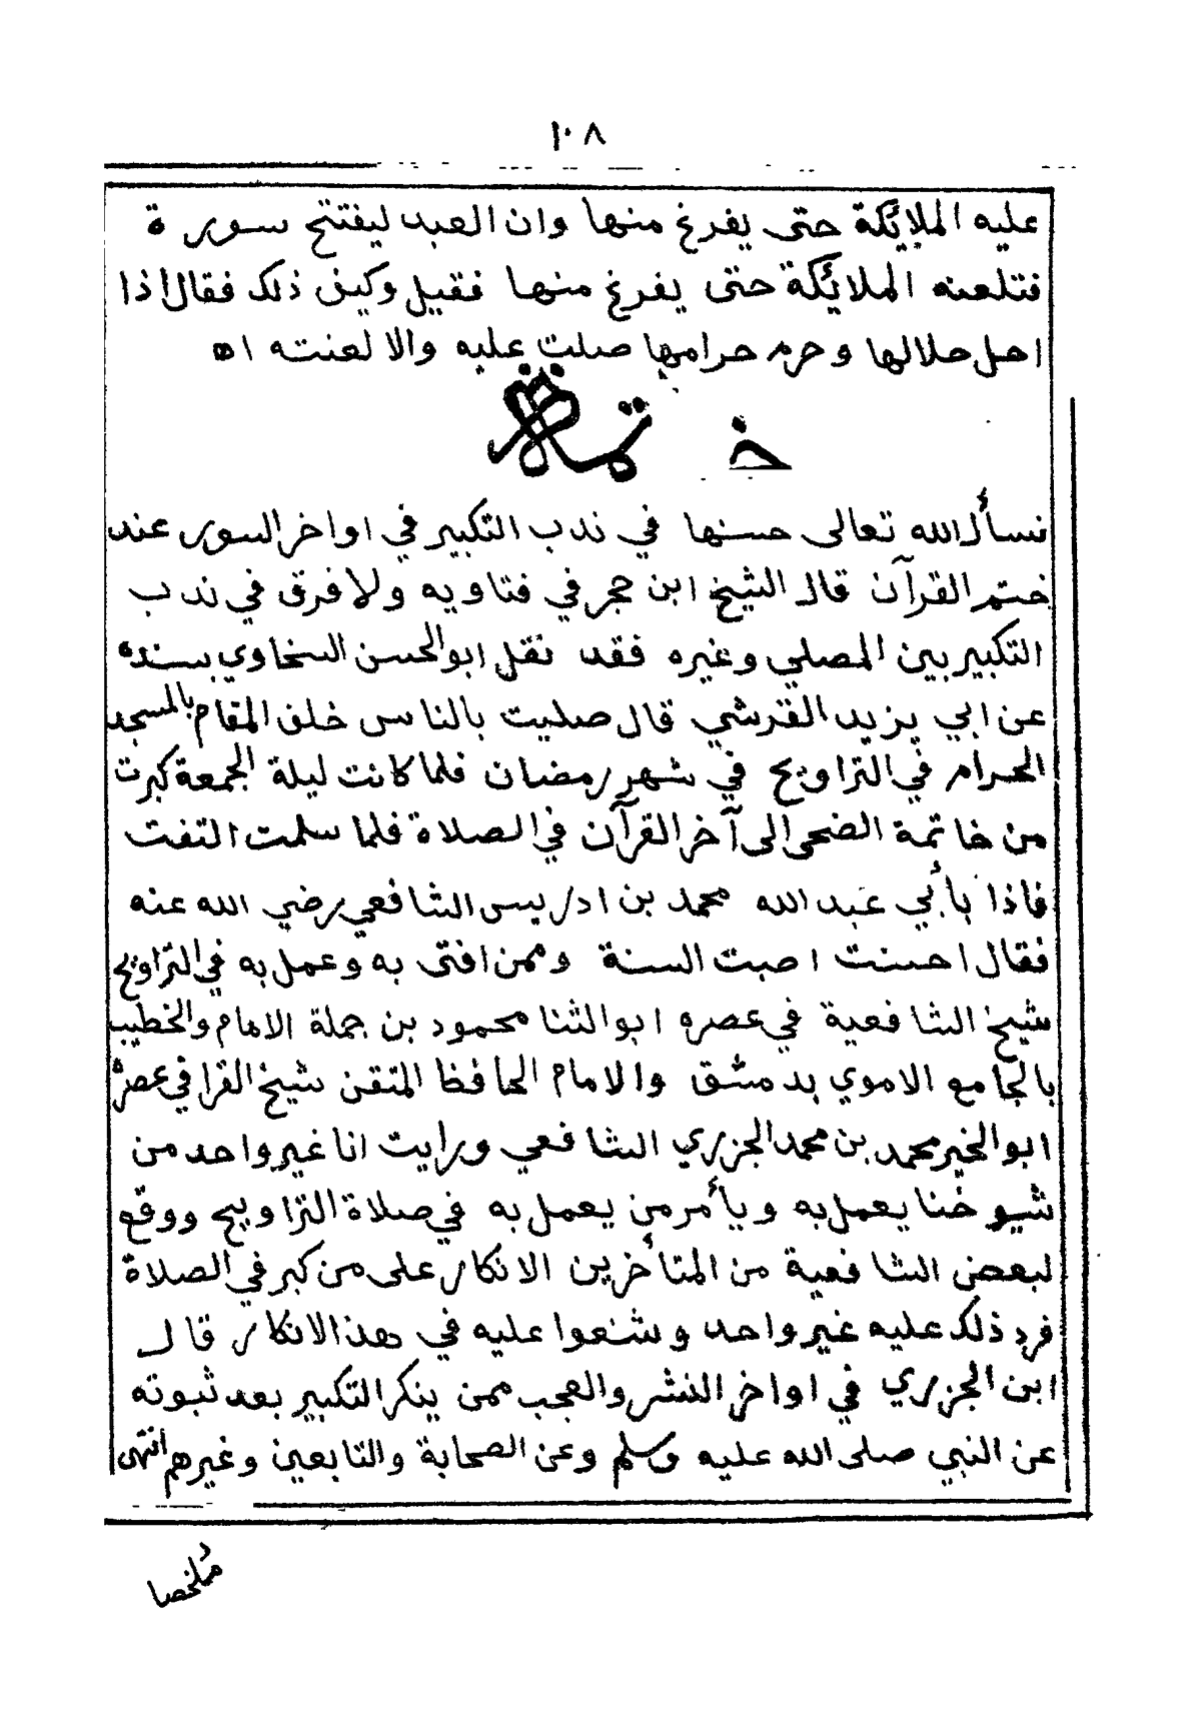 ١٠٨
عليه الملايكة حتى يفرغ منها وان العبد ليفتتح سورة
فتلعنه الملائكة حتى يفرغ منها فقيل وكيف ذلك فقال اذا
احل حلالها وحرم حرامها صلت عليه والا لعنته اه
خاتمة
نسأل الله تعالى حسنها في ندب التكبير في اواخر السور عند
ختم القرآن قال الشيخ ابن حجر في فتاويه ولا فرق في ندب
التكبير بين المصلي وغيره فقد نقل ابو الحسن السخاوي بسنده
عن ابي يزيد القرشي قال صليت بالناس خلف المقام بالمسجد
الحرام في التراويح في شهر رمضان فلما كانت ليلة الجمعة كبرت
من خاتمة الضحى الى آخر القرآن في الصلاة فلما سلمت التفت
فاذا بأبي عبد الله محمد بن ادريس الشافعي رضي الله عنه
فقال احسنت اصبت السنة وممن افتى به وعمل به في التراويح
شيخ الشافعية في عصره ابو الثنا محمود بن جملة الامام والخطيب
بالجامع الاموي بدمشق والامام الحافظ المتقن شيخ القرا في عصره
ابو الخير محمد بن محمد الجزري الشافعي ورايت انا غير واحد من
شيوخنا يعمل به ويأمر من يعمل به في صلاة التراويح ووقع
لبعض الشافعية من المتأخرين الانكار على من كبر في الصلاة
فرد ذلك عليه غير واحد وشنعوا عليه في هذا الانكار قال
ابن الجزري في اواخر النشر والعجب ممن ينكر التكبير بعد ثبوته
عن النبي صلى الله عليه وسلم وعن الصحابة والتابعين وغيرهم انتهى
مُلخصا